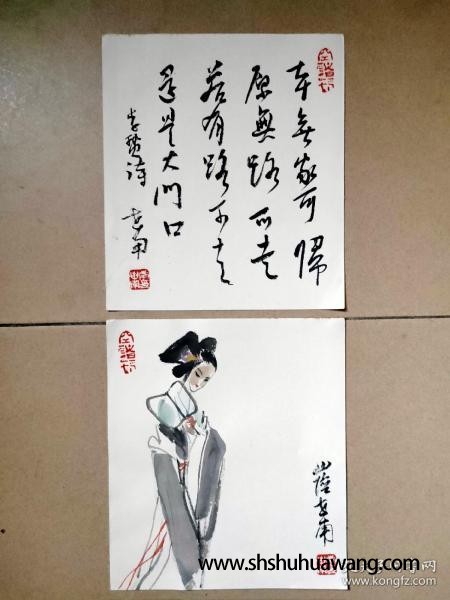 本无家可歸
原無路可走
若有路可走
還是大門口
李贄詩 世南
山陰世南
www.shshuhuawang.com
www.kongfz.com